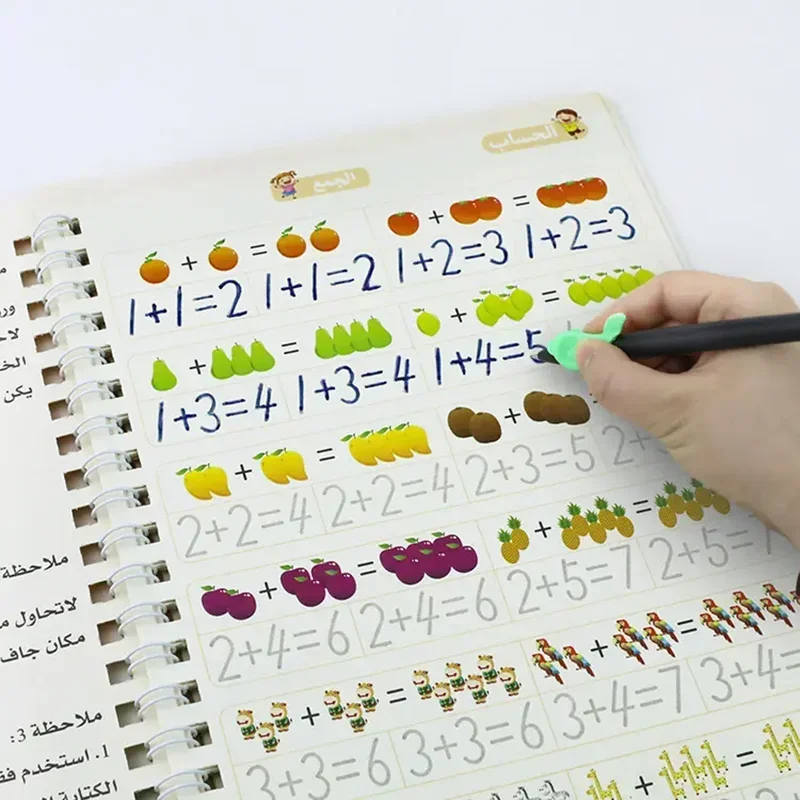 الحساب
الجمع
1+1=2 1+1=2 1+2=3 1+2=3
1+3=4 1+3=4 1+4=5
2+2=4 2+2=4 2+3=5 2+
2+4=6 2+4=6 2+5=7 2+5=7
3+3=6 3+3=6 3+4=7 3+4=
يكن
ملاحظة
لاتحاول
مكان جاف
ملاحظة 3:
1. استخدم
الكتابة